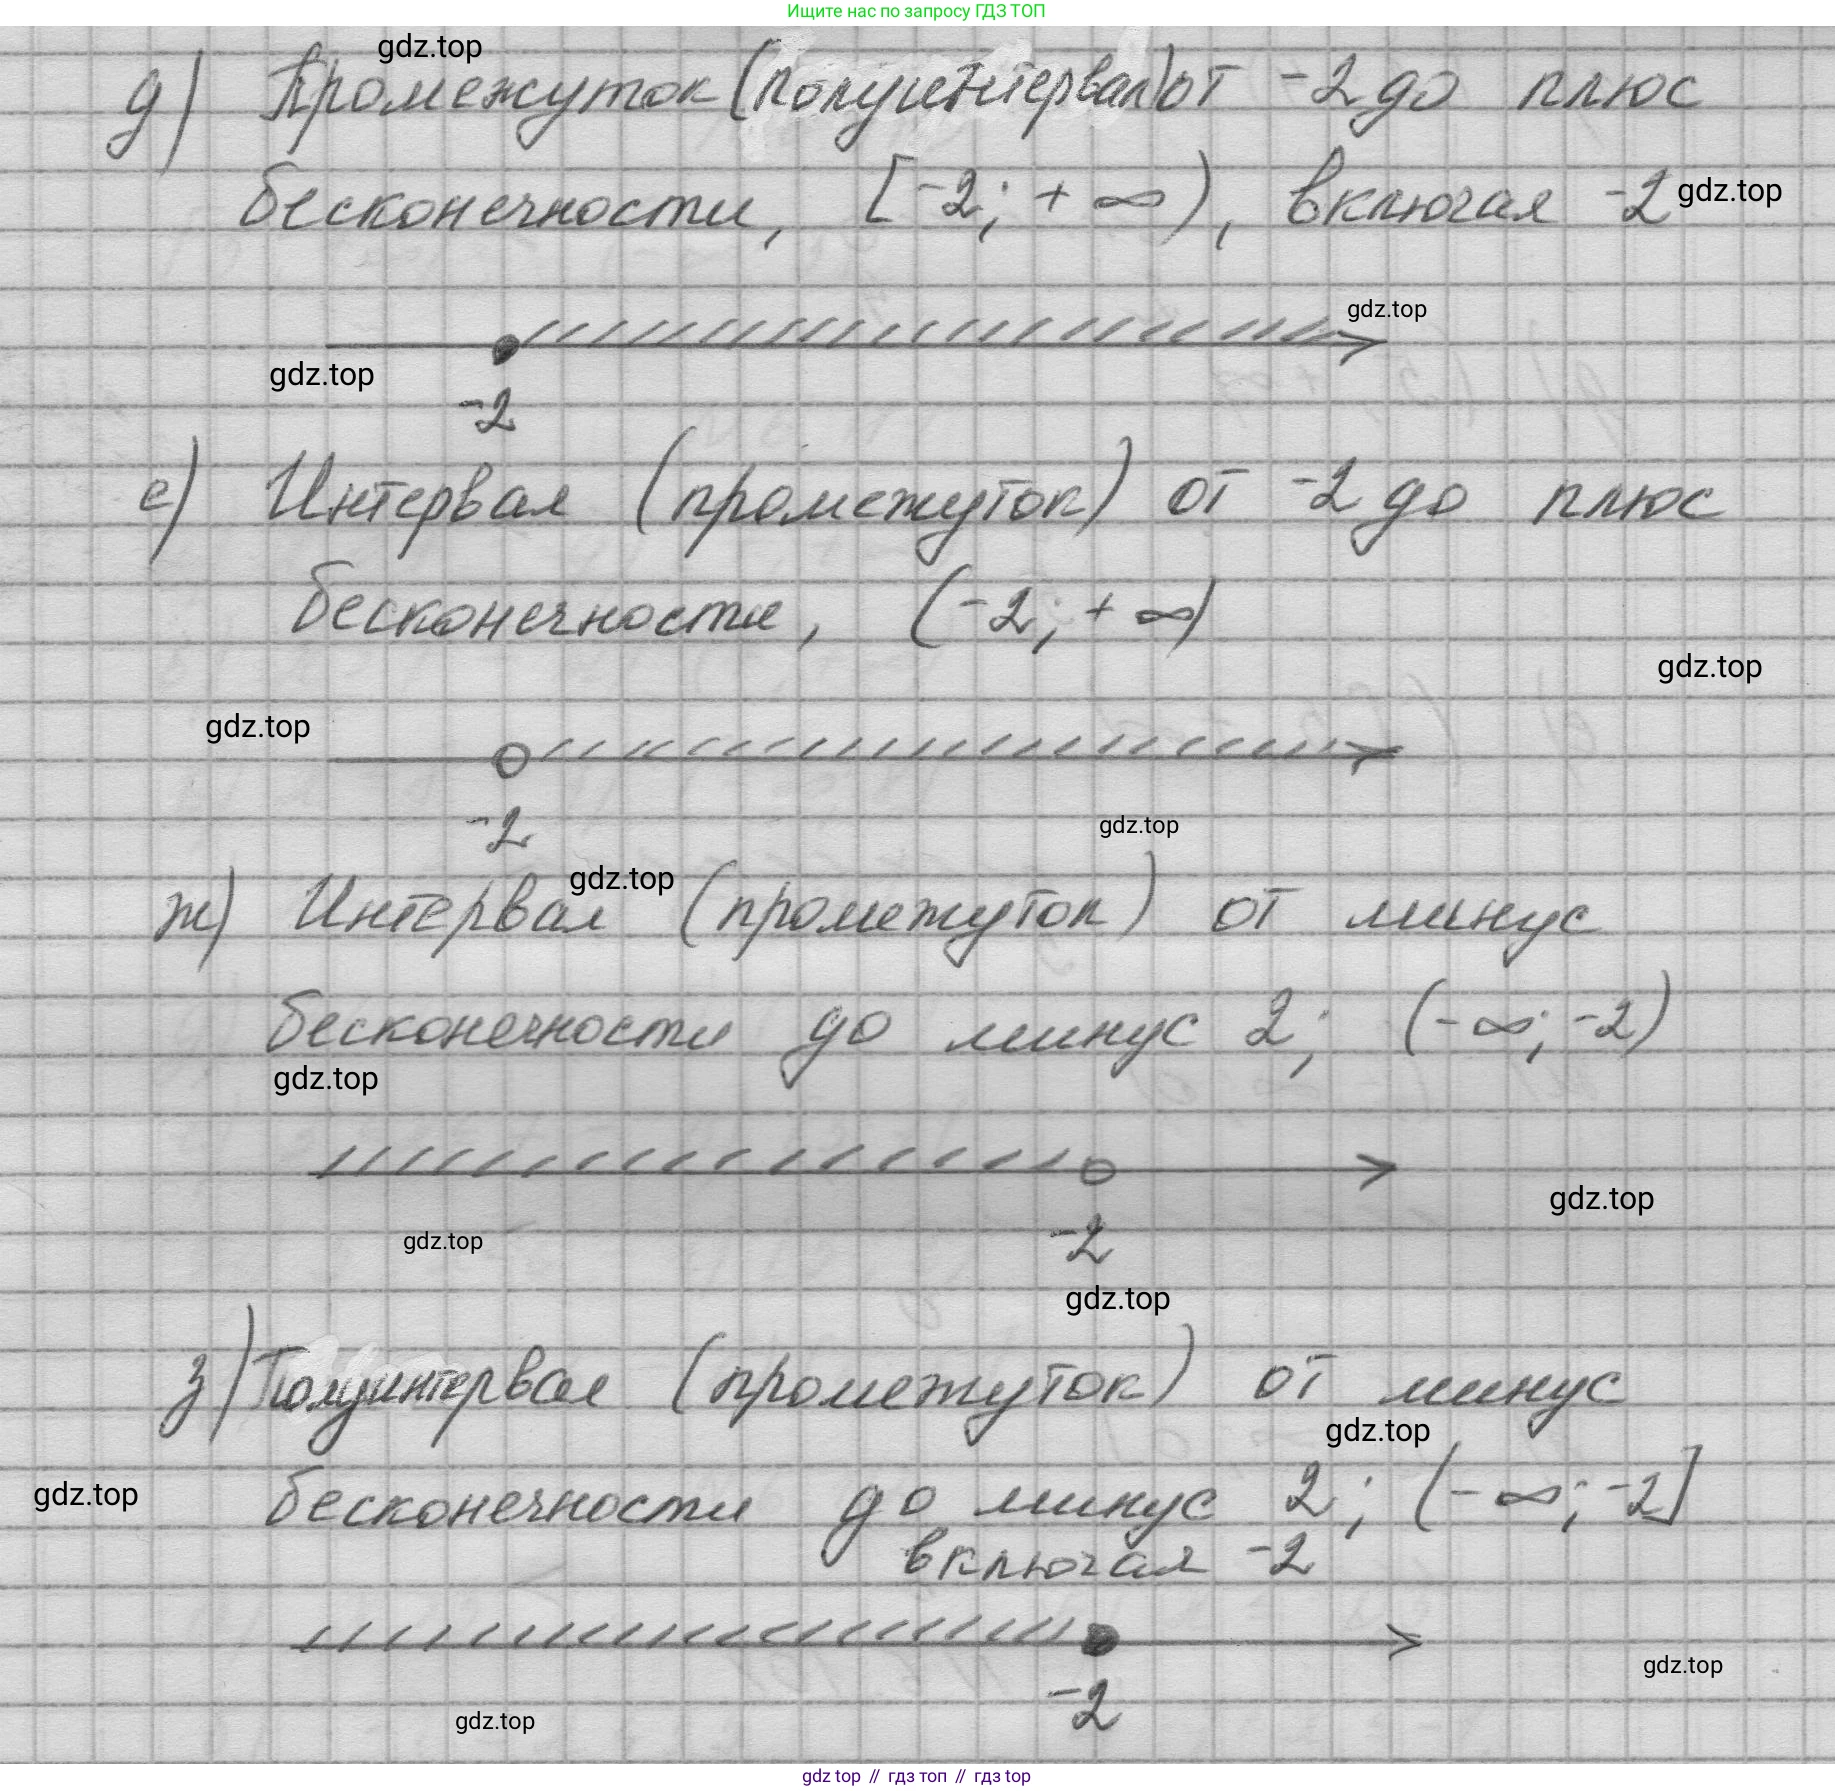 Ищите нас по запросу ГДЗ ТОП
gdz.top
д) Промежуток (полуинтервал) от -2 до плюс
бесконечности, [-2; +∞), включая -2
gdz.top
gdz.top
gdz.top
-2
е) Интервал (промежуток) от -2 до плюс
бесконечности, (-2; +∞)
gdz.top
gdz.top
-2
gdz.top
gdz.top
ж) Интервал (промежуток) от минус
бесконечности до минус 2; (-∞; -2)
gdz.top
gdz.top
gdz.top
-2
gdz.top
з) Полуинтервал (промежуток) от минус
gdz.top
gdz.top
бесконечности до минус 2; (-∞; -2]
включая -2
gdz.top
-2
gdz.top
gdz top // гдз топ // гдз top